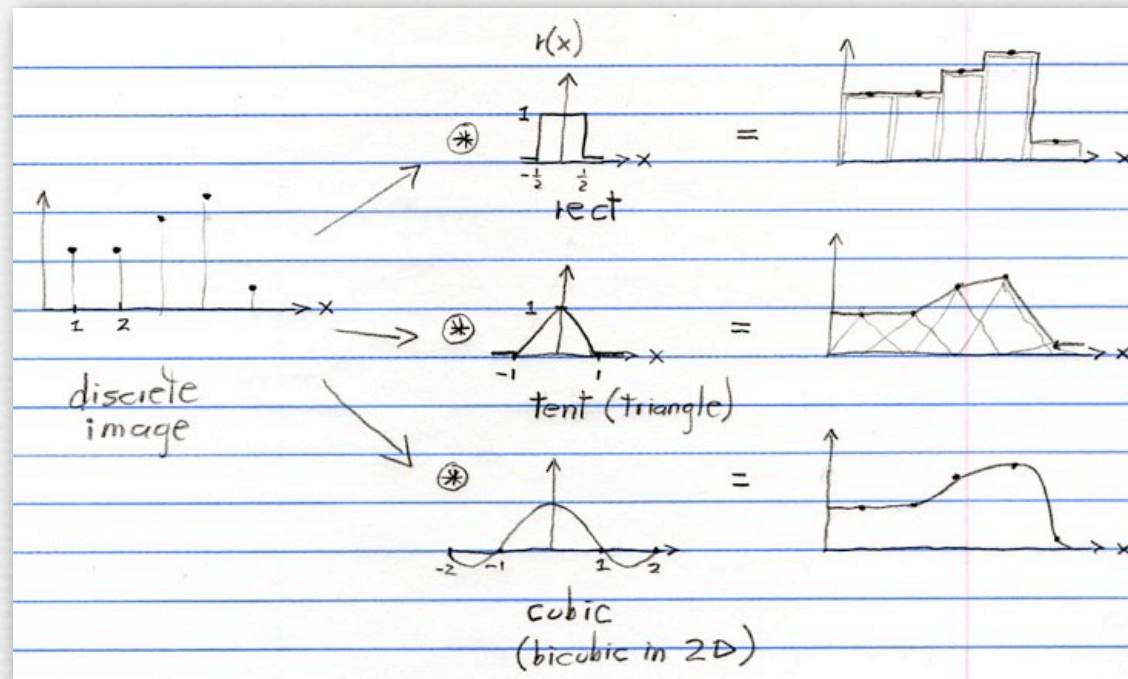 r(x)
1
⊛
=
x
x
-1/2
1/2
rect
x
1
2
1
⊛
=
x
x
-1
1
discrete
image
tent (triangle)
⊛
=
-2
-1
1
2
x
cubic
(bicubic in 2D)